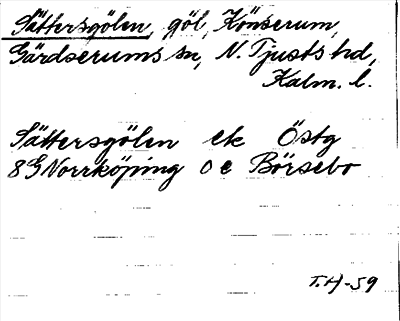 Sättersgölen, göl, Könserum,
Gärdserums sn, N. Tjusts hd,
Kalm. l.
Sättersgölen ek Östg
8G Norrköping 0 e Börsebo
T.H-59